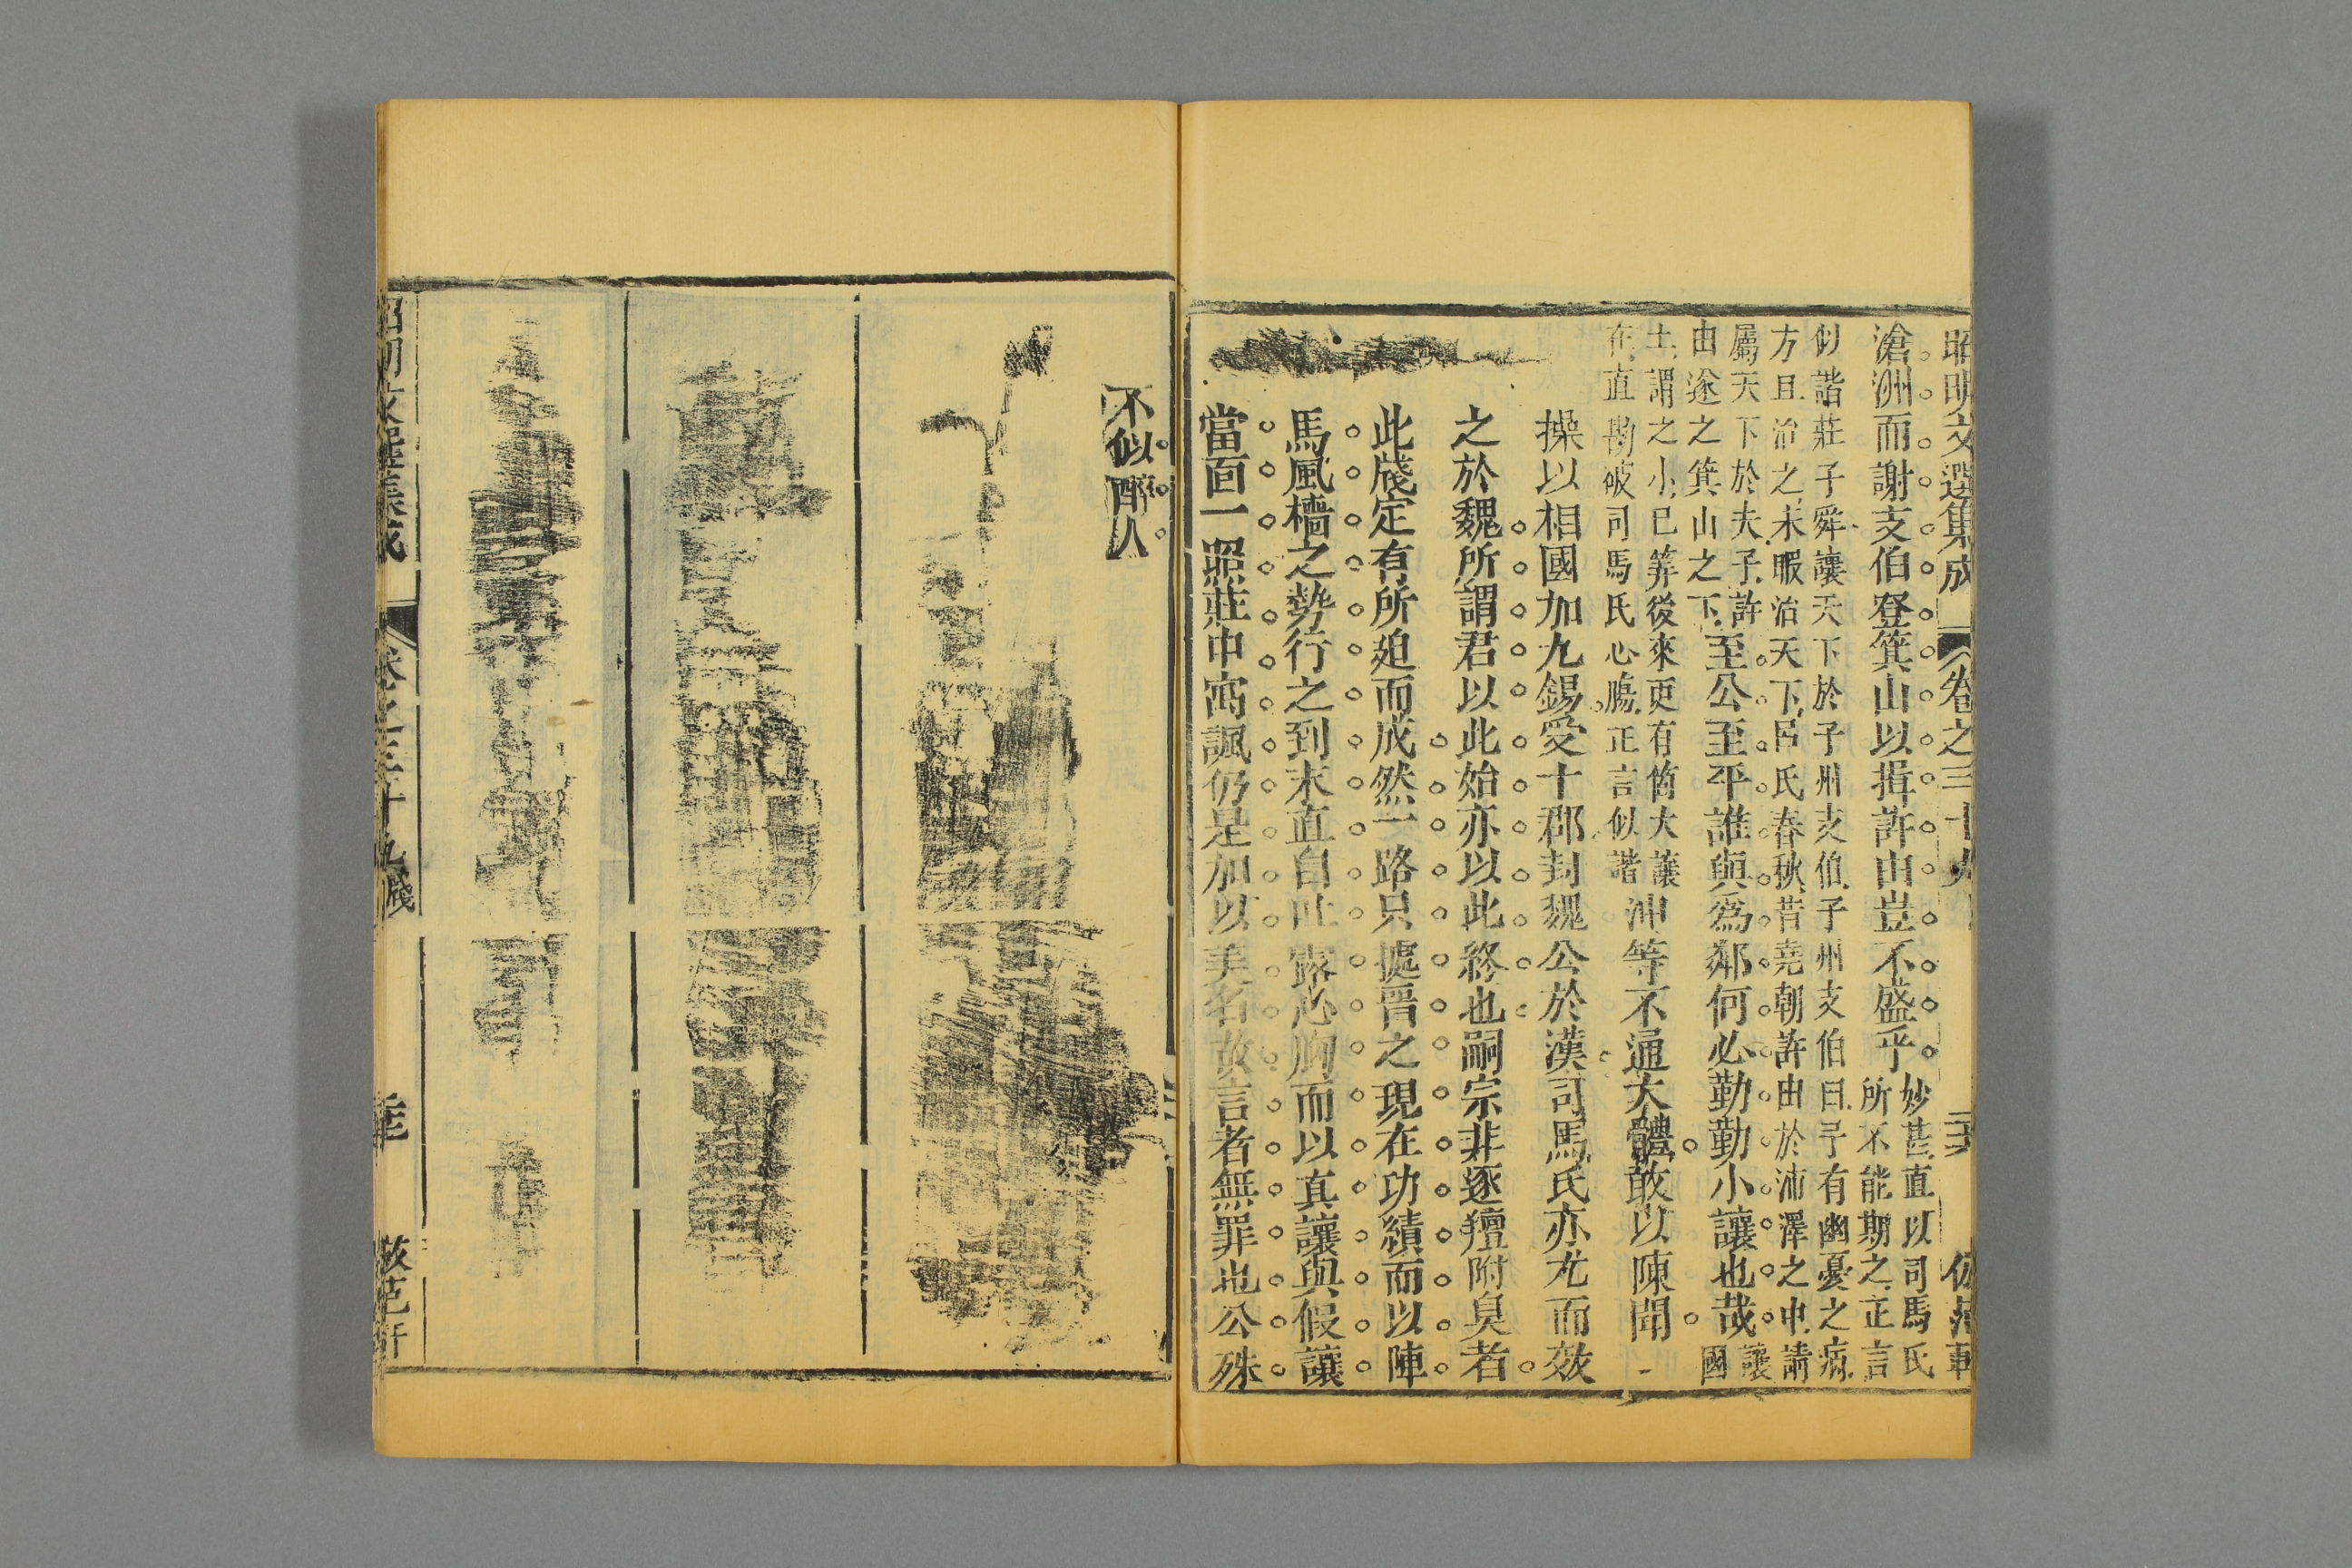 昭明文選集成 卷之三十九 仿范軒
滄洲而謝支伯登箕山以揖許由豈不盛乎
妙甚直以司馬氏
所不能期之正言
似諧莊子舜讓天下於子州支伯子州支伯曰予有幽憂之病
方且治之未暇治天下呂氏春秋昔堯朝許由於沛澤之中請
屬天下於夫子許
由遂之箕山之下
至公至平誰與為鄰何必勤勤小讓也哉
讓國
土謂之小已筭後來更有箇大讓
在直勘破司馬氏心膓正言似諧
沖等不通大體敢以陳聞
操以相國加九錫受十郡封魏公於漢司馬氏亦尤而效
之於魏所謂君以此始亦以此終也嗣宗非逐羶附臭者
此牋定有所廹而成然一路只據晉之現在功績而以陣
馬風檣之勢行之到末直自吐露心胸而以真讓與假讓
當面一照莊中寓諷仍是加以美名故言者無罪也公殊
不似醉人
昭明文選集成 卷之三十九 牋 仿范軒